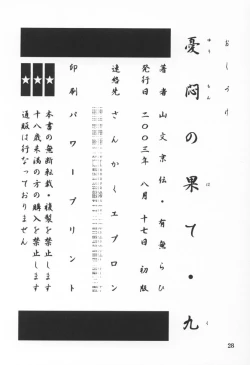 おしまい
憂悶の果て・九
ゆうもん は く
著者 山文京伝・有無らひ
発行日 二〇〇三年 八月 十七日 初版
連絡先 さんかくエプロン
印刷 パワープリント
★★★
本書の無断転載・複製を禁止します
十八歳未満の方の購入を禁止します
通販は行なっておりません
28